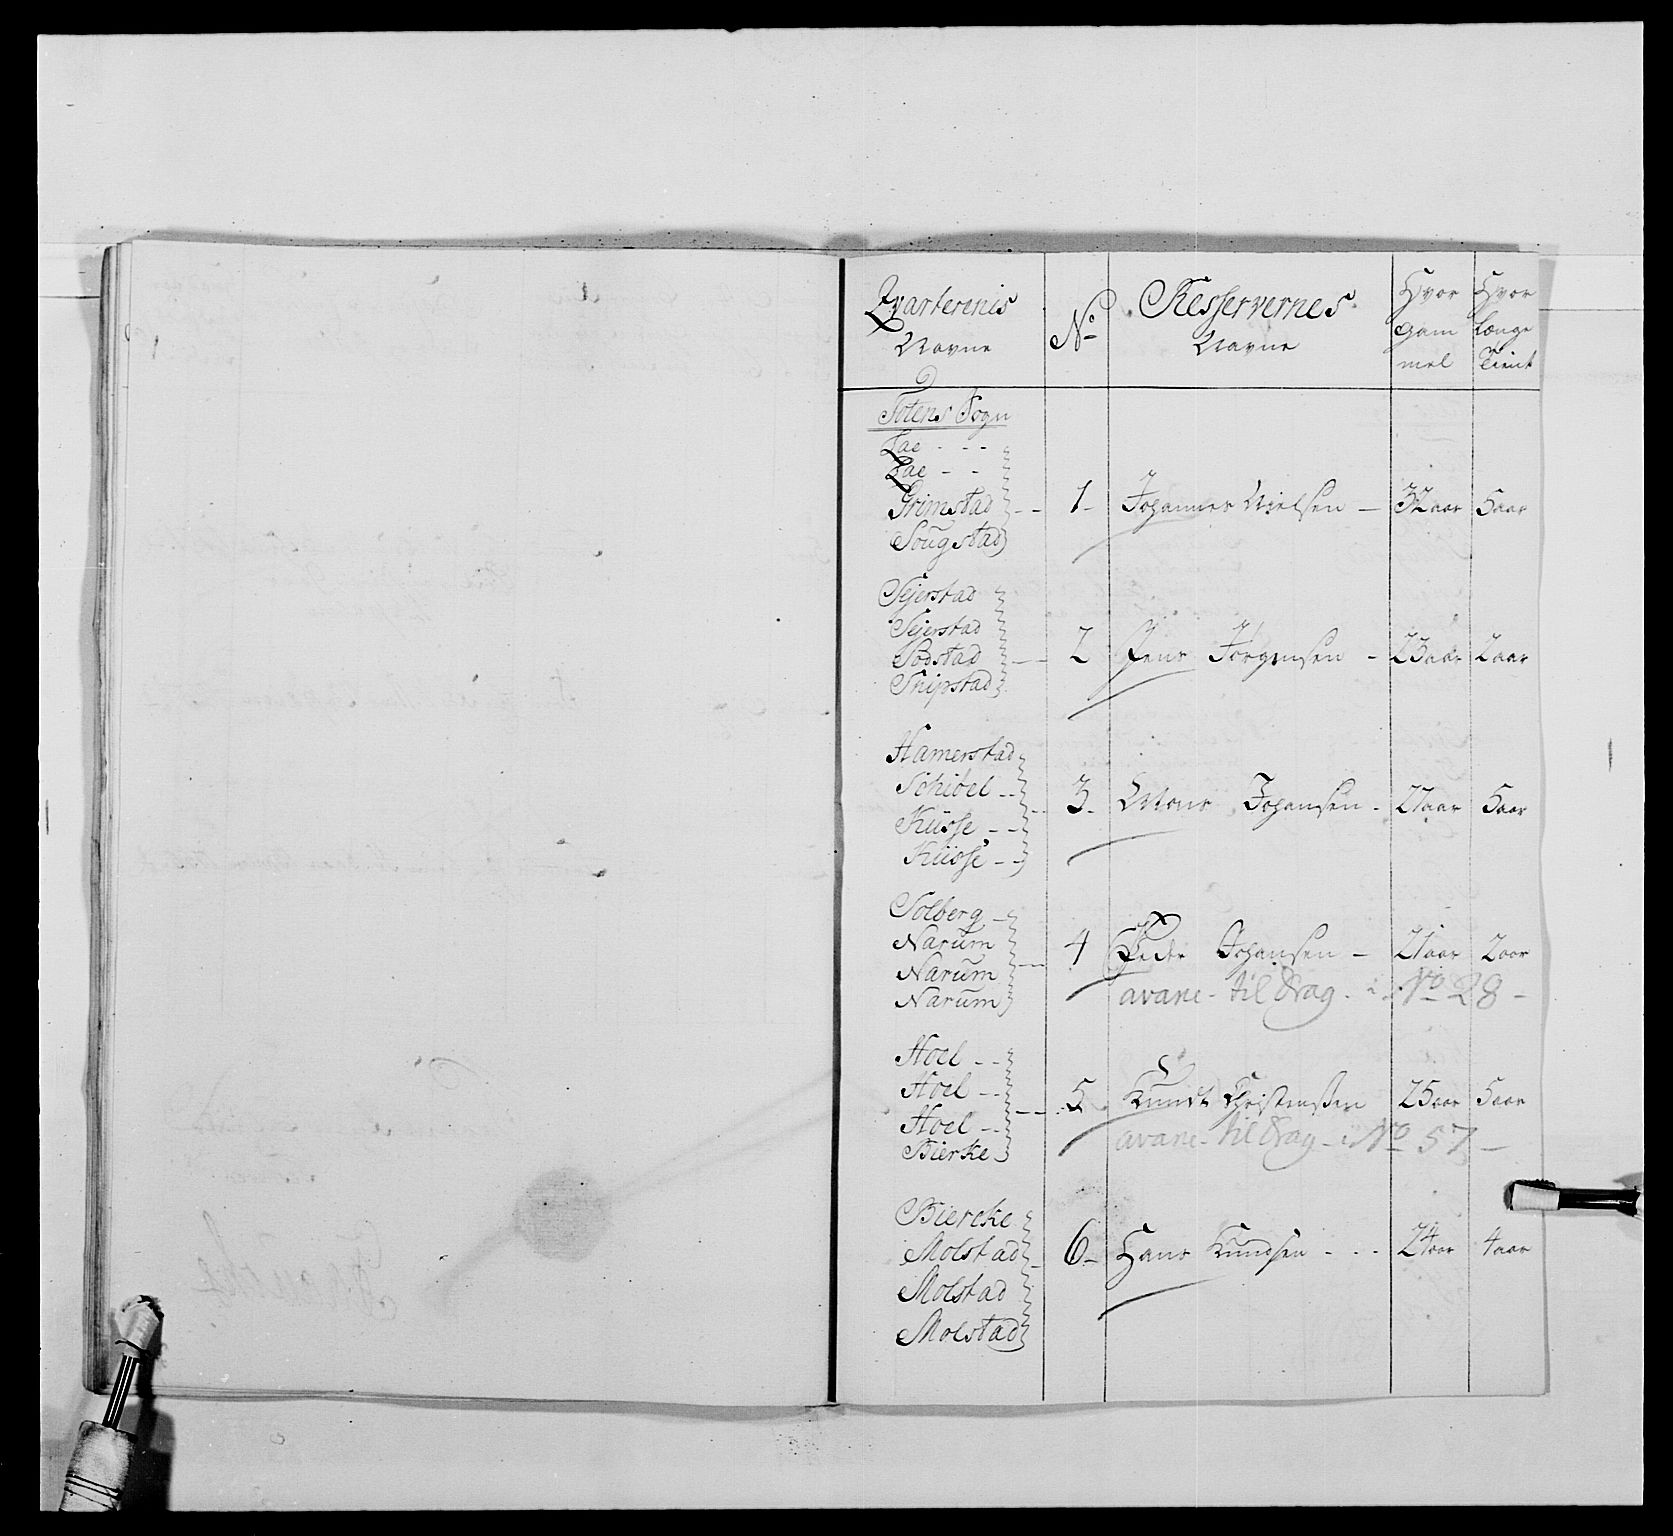 Qvarterenis Navne
No
Resservernes Navne
Hvor gam mel
Hvor længe Tient
Totens Sogn
Lae - - -
Lae - -
Grimstad - - 1 - Johannes Nielsen - 32 aar 5 aar
Sougstad
Sejerstad
Sejerstad
Sodstad - - 2 Jens Jörgensen - 23 aar 2 aar
Snipstad
Hamerstad
Schiöel - - 3 - Mons Johansen - 27 aar 5 aar
Küsse - -
Küsse - -
Solberg -
Narum 4 Peder Johansen - 21 aar 2 aar
Narum - - avane - til Drag - i No 28 -
Narum
Hoel - -
Hoel - - 5 Knudt Christensen 25 aar 5 aar
Hoel - - avane - til Drag - i No 57 -
Bierke
Biercke
Molstad - 6 - Hans Knudsen - - - 24 aar 4 aar
Molstad
Molstad